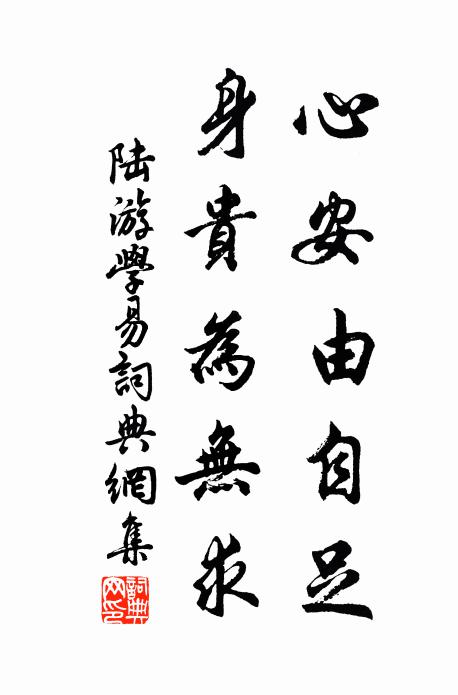 心安由自足
身貴為無求
陸游學易詞典網集
詞典網印